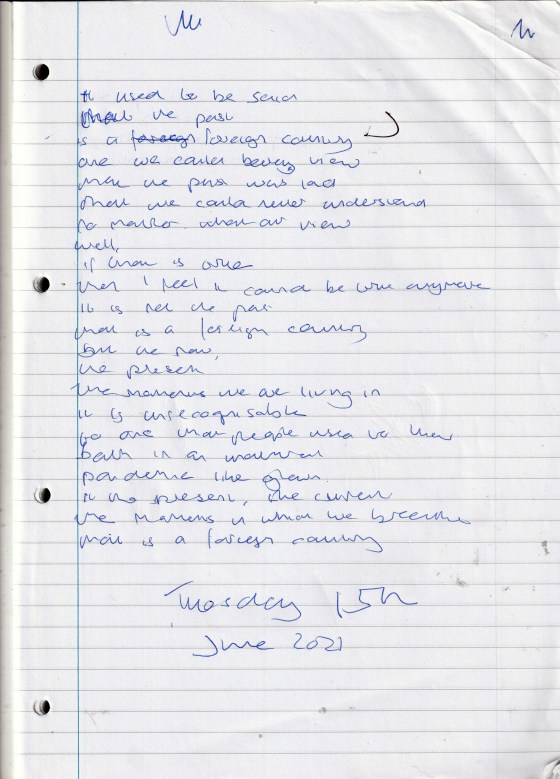 It used to be said
that the past
is a foreign foreign country
one we could barely view
that the past was lad
that we could never understand
no matter what our view
well,
if that is true
then I feel it cannot be true anymore
it is not the past
that is a foreign country
but the now,
the present
the moments we are living in
it is unrecognisable
to one that people used to
both in an
pandemic like
it the present, the current
the moments in which we breathe
that is a foreign country
Tuesday 15th
June 2021